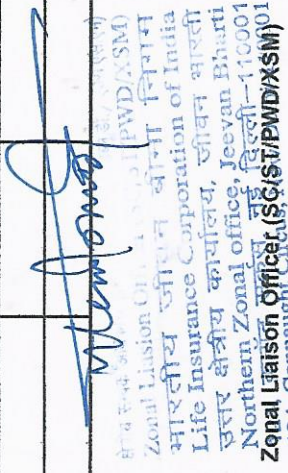 Zonal Liasion Of
भारतीय जीवन बीमा निगम
Life Insurance Corporation of India
उत्तर क्षेत्रीय कार्यालय, जीवन भारती
Northern Zonal office, Jeevan Bharti
नई दिल्ली-110001
Zonal Liaison Officer (SC/ST/PWD/XSM)